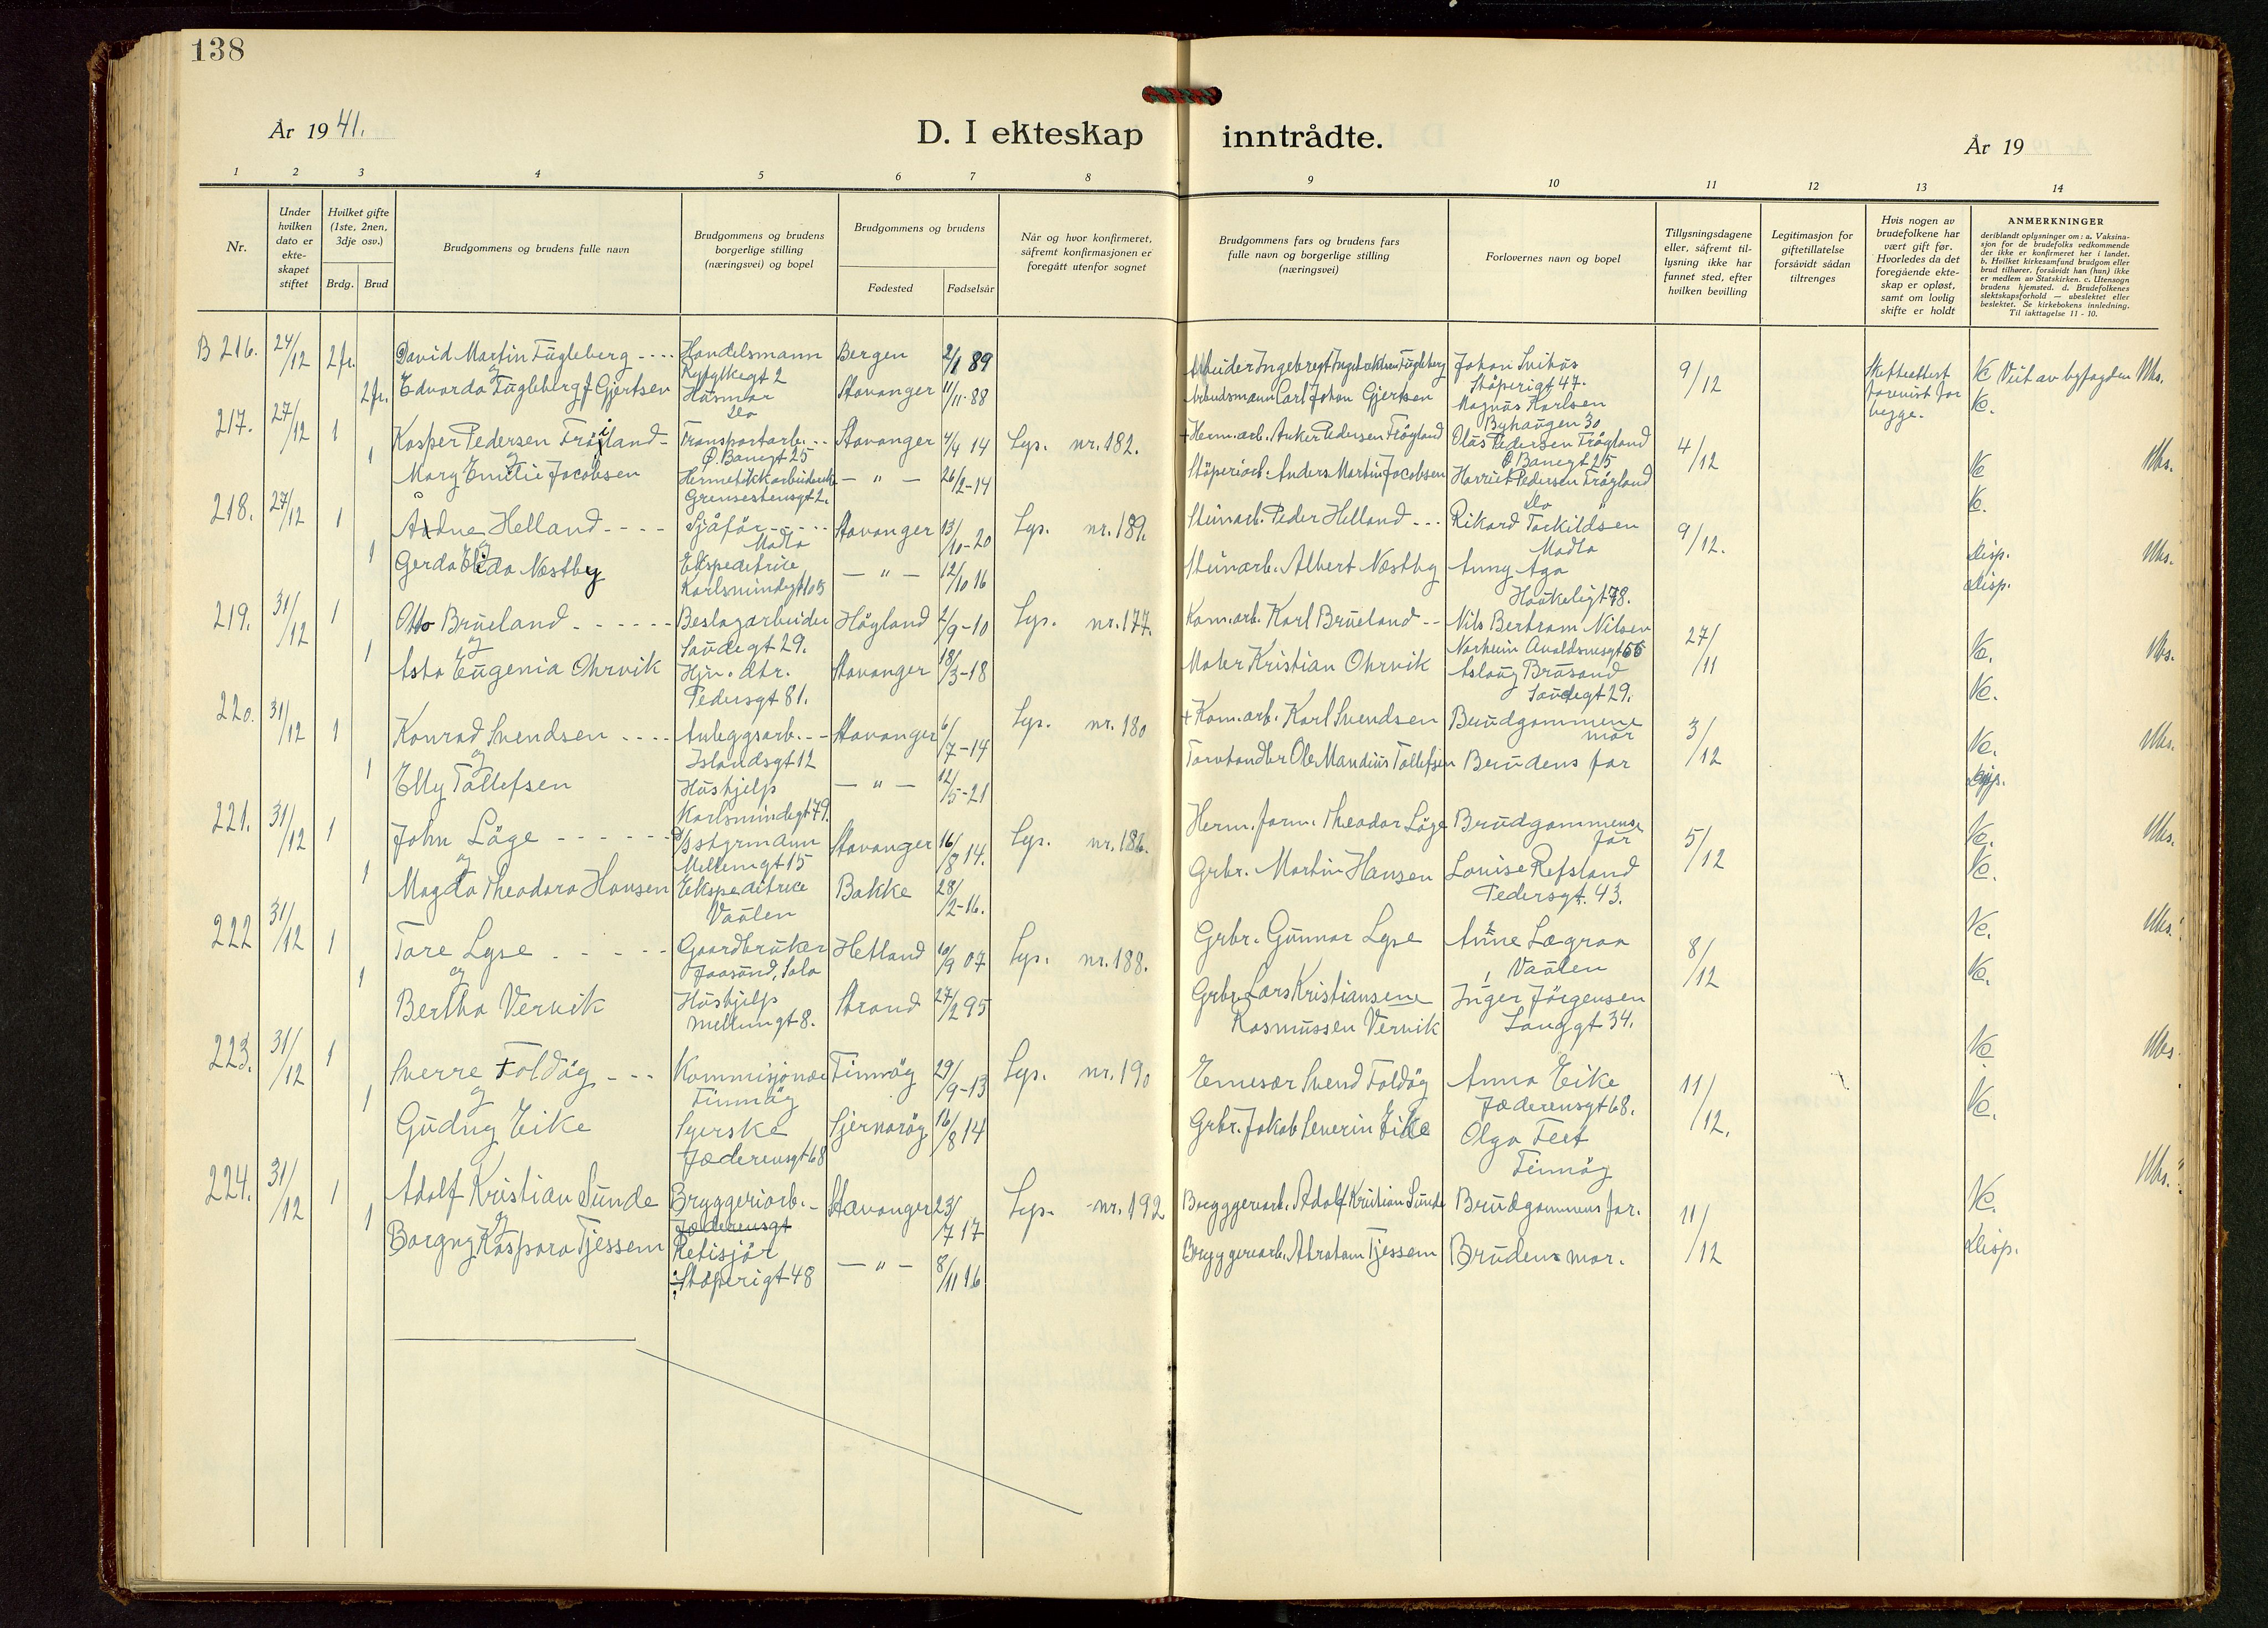 138
År 1941.
D. I ekteskap inntrådte.
År 19
1 2 3 4 5 6 7 8 9 10 11 12 13 14
Nr.
Under hvilken dato er ekteskapet stiftet
Hvilket gifte (1ste, 2nen, 3dje osv.)
Brdg. Brud
Brudgommens og brudens fulle navn
Brudgommens og brudens borgerlige stilling (næringsvei) og bopel
Brudgommens og brudens
Fødested Fødselsår
Når og hvor konfirmeret, såfremt konfirmasjonen er foregått utenfor sognet
Brudgommens fars og brudens fars fulle navn og borgerlige stilling (næringsvei)
Forlovernes navn og bopel
Tillysningsdagene eller, såfremt tillysning ikke har funnet sted, efter hvilken bevilling
Legitimasjon for giftetillatelse forsåvidt sådan tiltrenges
Hvis nogen av brudefolkene har vært gift før. Hvorledes da det foregående ekteskap er opløst, samt om lovlig skifte er holdt
ANMERKNINGER
deriblandt oplysninger om: a. Vaksinasjon for de brudefolks vedkommende der ikke er konfirmeret her i landet. b. Hvilket kirkesamfund brudgom eller brud tilhører, forsåvidt han (hun) ikke er medlem av Statskirken. c. Utensogn brudens hjemsted. d. Brudefolkenes slektskapsforhold — ubeslektet eller beslektet. Se kirkebokens innledning. Til iakttagelse 11 - 10.
B 216. 24/12 2 fr. David Martin Fugleberg - - - - Handelsmann Bergen 2/1 89 Arbeider Ingebregt Ingebrektsen Fugleberg Johan Svihus 9/12 Skifteattest Vc Viet av byfogden Ubs.
og Ryfylkegt 2 Støperigt 47.
2 fr. Edvarda Fugleberg f Gjertsen Husmor Stavanger 11/11-88 Arbeidsmann Carl Johan Gjertsen Magnus Karlsen forevist for begge. Vc.
do Byhaugen 30
217. 27/12 1 Kasper Pedersen Fröiland - Transportarb. - - Stavanger 4/4 14 Lys. nr. 182. + Herm. arb. Anker Pedersen Fröyland Olus Pedersen Fröyland 4/12 Vc Ubs.
og Ø. Banegt 25 Ø Banegt 25
1 Mary Emilie Jacobsen Hermetikkarbeiderske - " - 26/2-14 Støperiarb. Anders Martin Jacobsen Harriet Pedersen Fröyland Vc.
Grensestensgt 2. do
218. 27/12 1 Ådne Helland - - - - Sjåför - - - - - Stavanger 13/10-20 Lys. nr. 189. Steinarb. Peder Helland - - - Rikard Torkildsen 9/12. Disp. Ubs.
og Madla Madla
1 Gerda Elida Næstby Ekspeditrise - " - 12/10 16 Steinarb. Albert Næstby Anny Aga Disp.
Karlsmindegt 105 Haukeligt 78.
219. 31/12 1 Otto Brueland - - - - - - Beslagarbeider Högland 2/9-10 Lys. nr. 177. Kom. arb. Karl Brueland - - Nils Bertram Nilsen 27/11 Vc. Ubs.
og Saudegt 29. Norheim Avaldsnesgt 55
1 Asta Eugenia Ohrvik Hjv. dtr. Stavanger 18/3-18 Maler Kristian Ohrvik Aslaug Brusand Vc.
Pedersgt 81. Saudegt 29.
220. 31/12 1 Konrad Svendsen - - - - Anleggsarb. - - Stavanger 6/7-14 Lys. nr. 180 + Kom. arb. Karl Svendsen Brudgommens mor 3/12 Vc. Ubs.
og Islandsgt 12
1 Elly Tollefsen Hushjelp - " - 12/5-21 Torvhandler Ole Mandius Tollefsen Brudens far
Karlsmindegt 79.
221. 31/12 1 John Löge - - - - - - D/s styrmann Stavanger 16/8 14. Lys. nr. 186. Herm. form. Theodor Löge Brudgommens far 5/12 Vc. Ubs.
og Mellemgt 15
1 Magda Theodora Hansen Ekspeditrice Bakke 28/2-16. Grbr. Martin Hansen Louise Refsland Vc.
Vaulen Pedersgt. 43.
222 31/12 1 Tore Lyse - - - - Gaardbruker Hetland 10/9 07 Lys. nr. 188. Grbr. Gunnar Lyse Anne Lægran 8/12 Vc. Ubs.
og Jaasund, Sola Vaulen
1 Bertha Vervik Hushjelp Strand 27/2 95 Grbr. Lars Kristiansene Inger Jörgensen Vc.
Mellemgt 8. Rasmussen Vervik Langgt 34.
223. 31/12 1 Sverre Foldöy - - - Kommisjonær Finnöy 29/9-13 Lys. nr. 190 Svend Foldöy Anna Eike 11/12. Vc Ubs
og Finnöy Jæderensgt 68.
1 Gudny Eike Syerske Sjernaröy 16/8 14 Grbr. Jakob Severin Eike Olga Feet Vc.
Jæderensgt 68 Finnöy
224. 31/12 1 Adolf Kristian Sunde Bryggeriarb. - Stavanger 23/7 17 Lys. - nr. 192 Bryggeriarb. Adolf Kristian Sunde Brudgommens far. 11/12 Vc. Ubs.
og Jæderensgt
1 Borgny Kaspara Tjessem Revisjör - " - 8/11 16 Bryggeriarb. Abraham Tjessem Brudens mor. Disp.
Støperigt 48